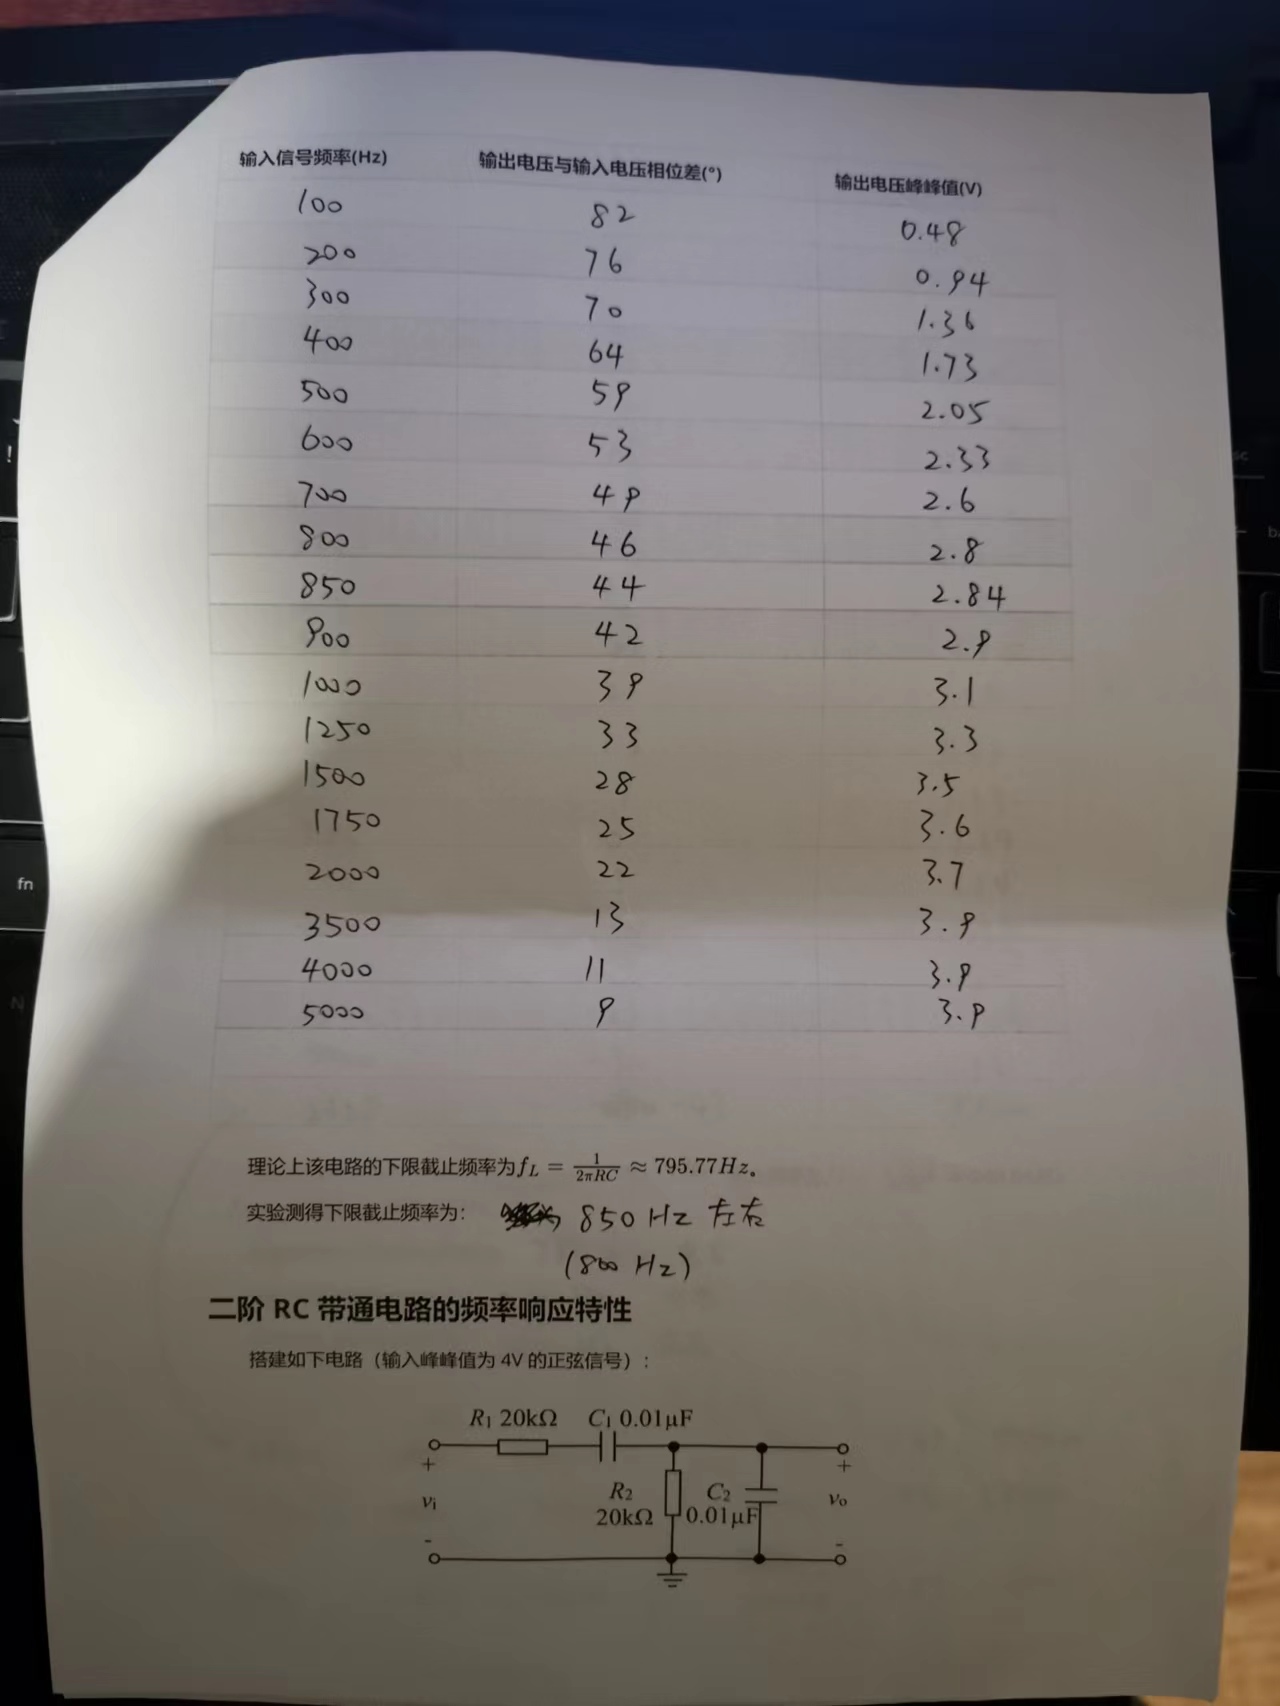 输入信号频率(Hz) 输出电压与输入电压相位差(°) 输出电压峰峰值(V)
100 82 0.48
200 76 0.94
300 70 1.36
400 64 1.73
500 59 2.05
600 53 2.33
700 49 2.6
800 46 2.8
850 44 2.84
900 42 2.9
1000 39 3.1
1250 33 3.3
1500 28 3.5
1750 25 3.6
2000 22 3.7
3500 13 3.9
4000 11 3.9
5000 9 3.9
理论上该电路的下限截止频率为f_L = 1/(2πRC) ≈ 795.77Hz。
实验测得下限截止频率为： 850 Hz 左右
(800 Hz)
二阶 RC 带通电路的频率响应特性
搭建如下电路（输入峰峰值为 4V 的正弦信号）：
R1 20kΩ C1 0.01μF
+ +
R2 C2
vi vo
20kΩ 0.01μF
- -
fn